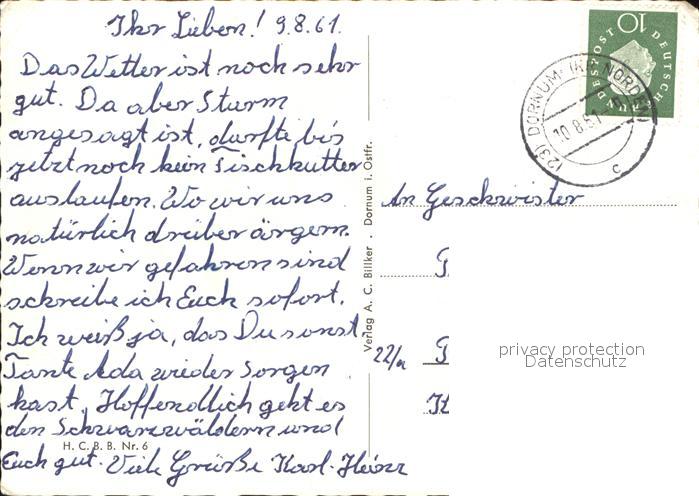 Ihr Lieben! 9.8.61.
Das Wetter ist noch sehr
gut. Da aber Sturm
angesagt ist, durfte bis
jetzt noch kein Fischkutter
auslaufen. Wo wir uns
natürlich drüber ärgern.
Wenn wir gefahren sind
schreibe ich Euch sofort.
Ich weiß ja, das Du sonst
Tante Ada wieder Sorgen
hast. Hoffendlich geht es
den Schwarzwäldern und
Euch gut. Viele Grüße Karl-Heinz
H. C. B. B. Nr. 6
Verlag A. C. Billker . Dornum i. Ostfr.
10
DEUTSCHE BUNDESPOST
(23) DORNUM
10.8.61
c
An Geschwister
22/a
privacy protection
Datenschutz